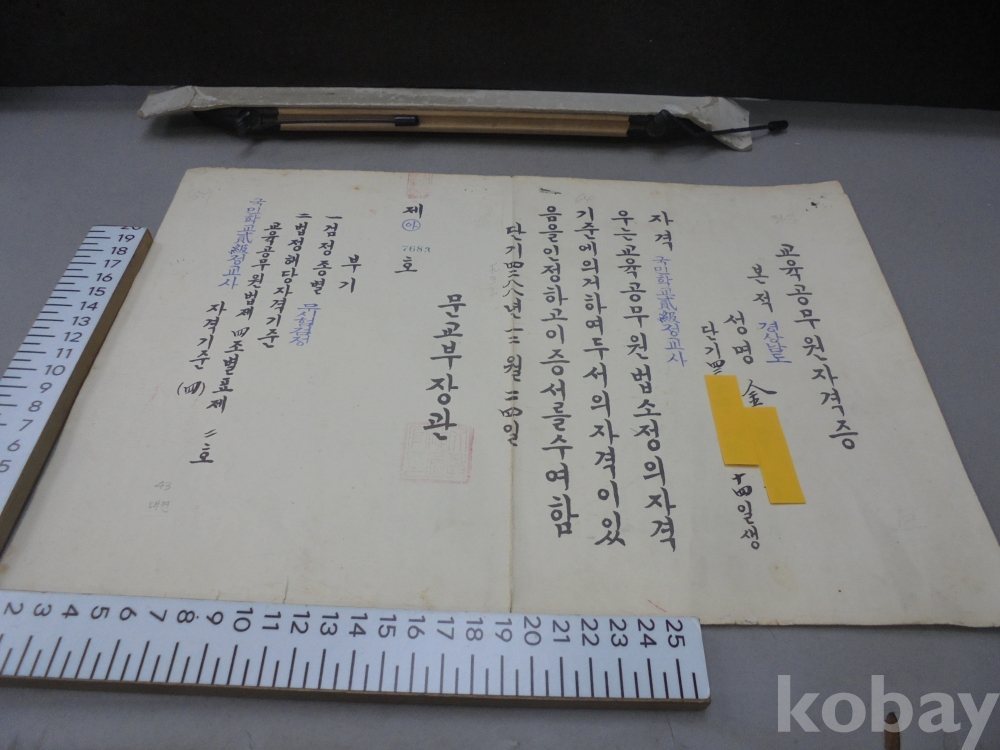 교육공무원자격증
본적 경상남도
성명 金
단기四 十四일생
자격 국민학교貳級정교사
우는교육공무원법소정의자격
기준에의거하여두서의자격이있
음을인정하고이증서를수여함
단기四二八八년一二월二四일
문교부장관
제 야 7683 호
부기
一 검정종별 무시험검정
二 법정해당자격기준
교육공무원법제四조별표제二호
국민학교貳級정교사 자격기준(四)
43
20
19
18
17
16
15
14
13
12
11
10
9
8
7
6
5
2 3 4 5 6 7 8 9 10 11 12 13 14 15 16 17 18 19 20 21 22 23 24 25
kobay